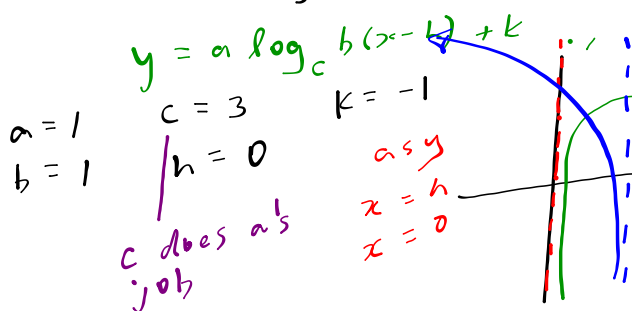 y = a log_c b(x-h) + k
a = 1
b = 1
c = 3
h = 0
k = -1
asy
x = h
x = 0
c does a's
job